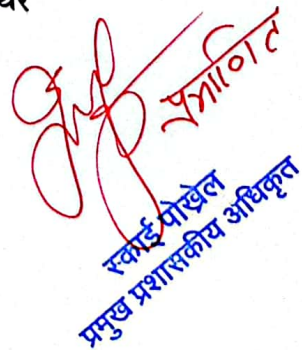 प्रमाणित
स्काई पोख्रेल
प्रमुख प्रशासकीय अधिकृत